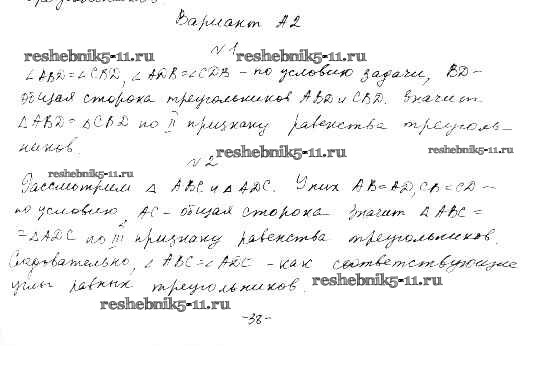 Вариант А2
reshebnik5-11.ru
№1
reshebnik5-11.ru
∠ABD=∠CBD, ∠ADB=∠CDB - по условию задачи, BD-
общая сторона треугольников ABD и CBD. Значит
△ABD=△CBD по II признаку равенства треуголь-
ников.
reshebnik5-11.ru
reshebnik5-11.ru
№2
reshebnik5-11.ru
Рассмотрим △ ABC и △ ADC. У них AB=AD, CB=CD -
по условию, AC - общая сторона. Значит △ABC=
=△ADC по III признаку равенства треугольников.
Следовательно, ∠ABC=∠ADC - как соответствующие
углы равных треугольников.
reshebnik5-11.ru
reshebnik5-11.ru
-38-